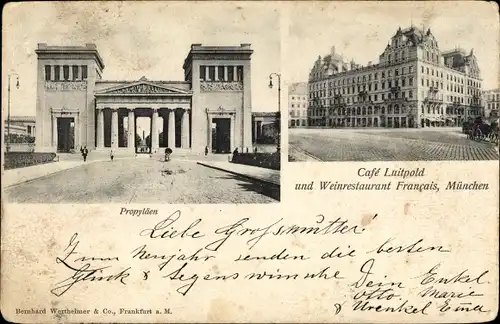 Café Luitpold
und Weinrestaurant Français, München
Propyläen
Liebe Großmutter!
Zum Neujahr senden die besten
Glück & Segenswünsche
Dein Enkel
Otto, Marie
& Urenkel Erna
Bernhard Wertheimer & Co., Frankfurt a. M.